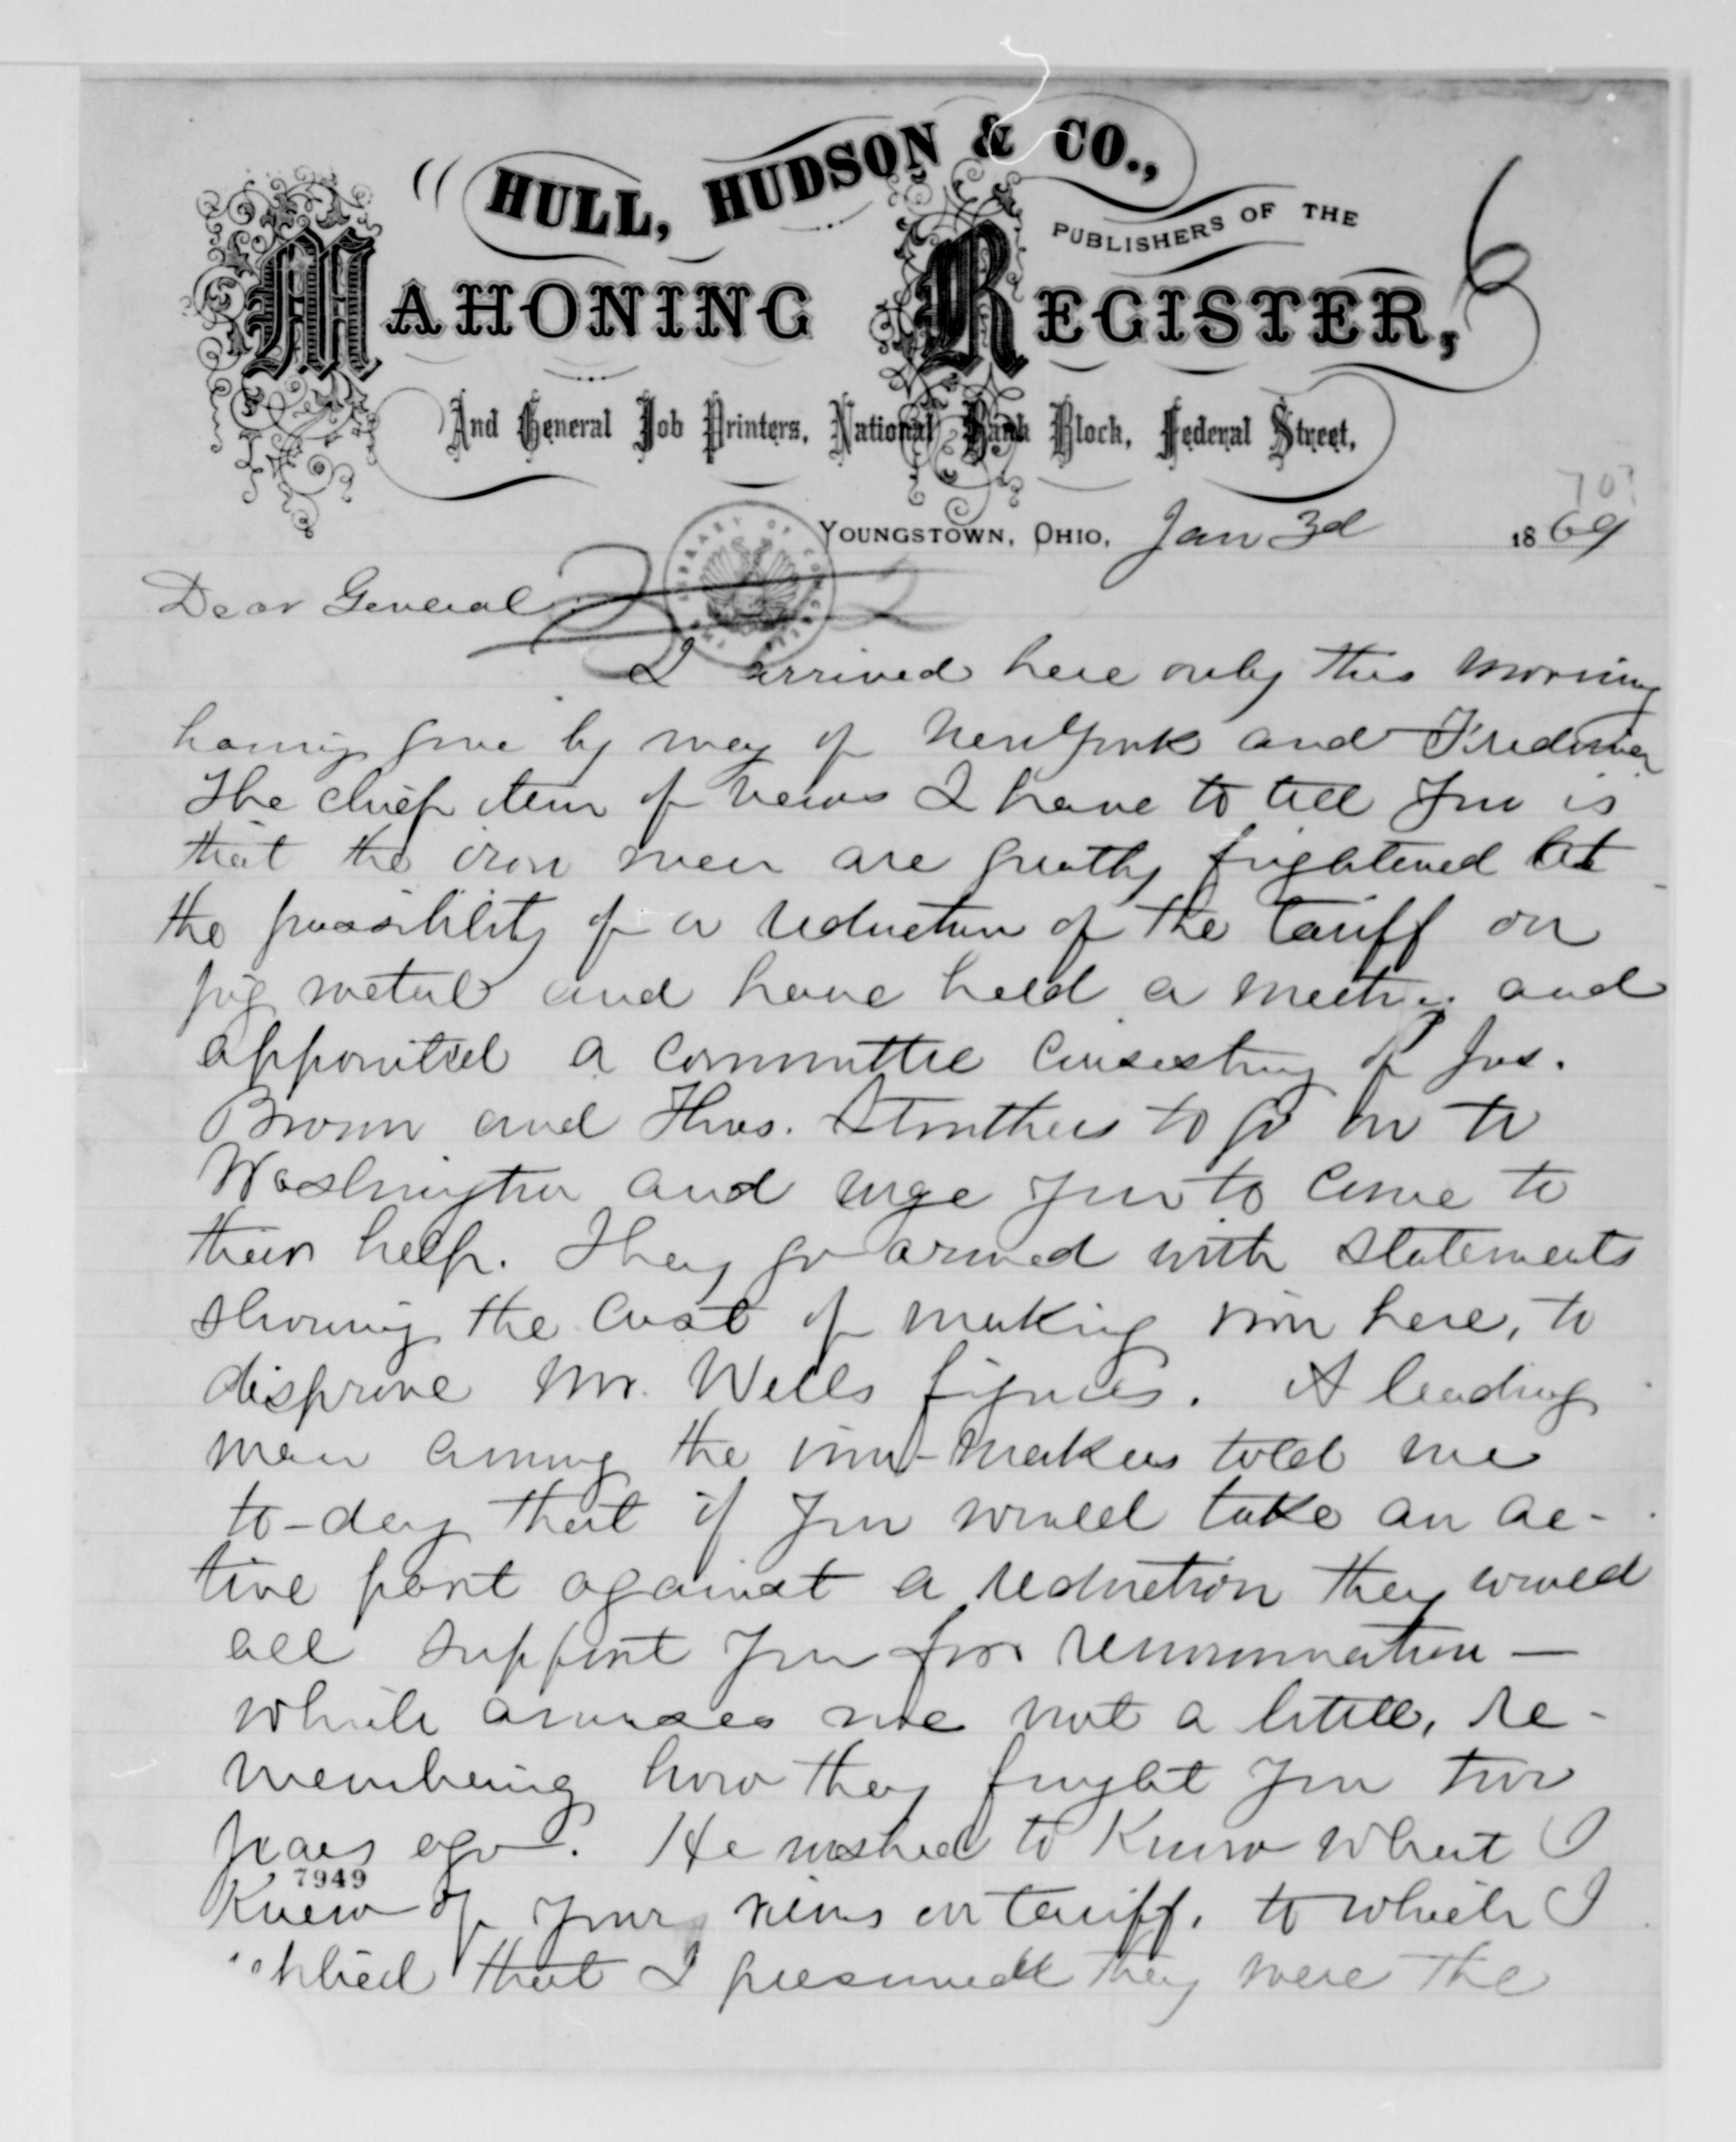 HULL, HUDSON & CO.,
PUBLISHERS OF THE
MAHONING REGISTER,
6
And General Job Printers, National Bank Block, Federal Street,
70?
YOUNGSTOWN, OHIO, Jan 3d 1869
Dear General:
I arrived here only this morning
having gone by way of New York and Fredonia
The chief item of news I have to tell you is
that the iron men are greatly frightened at
the possibility of a reduction of the tariff on
pig metal and have held a meeting and
appointed a committee consisting of Jos.
Brown and Thos. Struthers to go on to
Washington and urge you to come to
their help. They go armed with statements
showing the cost of making iron here, to
disprove Mr. Wells figures. A leading
man among the iron-makers told me
to-day that if you would take an ac-
tive part against a reduction they would
all support you for renomination —
which amuses me not a little, re-
membering how they fought you two
years ago. He wished to know what I
7949
Knew of your views on tariff, to which I
replied that I presumed they were the